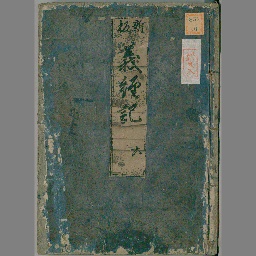 新板
義經記
六